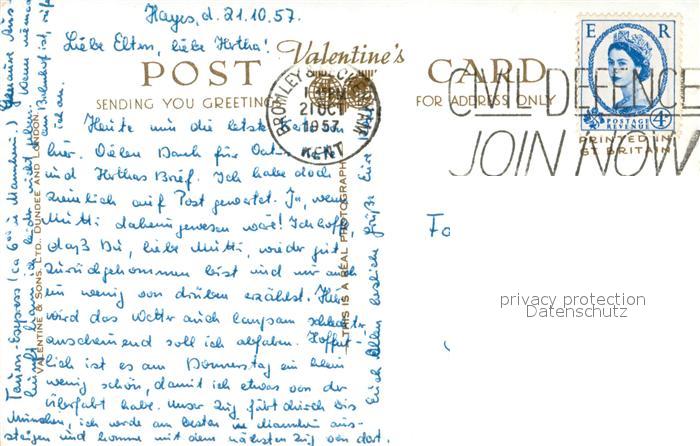 Hayes, d. 21.10.57.
Liebe Eltern, liebe Hertha!
Valentine's
POST CARD
SENDING YOU GREETINGS
FOR ADDRESS ONLY
BROMLEY &
21 OCT
1957
KENT
CIVIL DEFENCE
JOIN NOW
E R
POSTAGE
REVENUE
4D
PRINTED IN
GT BRITAIN
Heute nur die letzte Karte von
hier. Vielen Dank für
und Herthas Brief. Ich habe doch
ziemlich auf Post gewartet. Ja, wenn
Mutti daheim gewesen wäre! Ich hoffe,
daß Du, liebe Mutti, wieder gut
zurückgekommen bist und mir auch
ein wenig von drüben erzählst. Hier
wird das Wetter auch langsam schlechter
anscheinend soll ich abfahren. Hoffent-
lich ist es am Donnerstag ein klein
wenig schön, damit ich etwas von der
Überfahrt habe. Unser Zug fährt durch bis
München, ich werde am besten in aus-
steigen und komme mit dem nächsten Zug von dort.
Tauern-Express (ca 6 in
kunft kann ich leider nicht
am Bahnhof ist,
ich an.
Euch Allen herzliche Grüße Eure
VALENTINE & SONS, LTD., DUNDEE AND LONDON.
THIS IS A REAL PHOTOGRAPH
privacy protection
Datenschutz